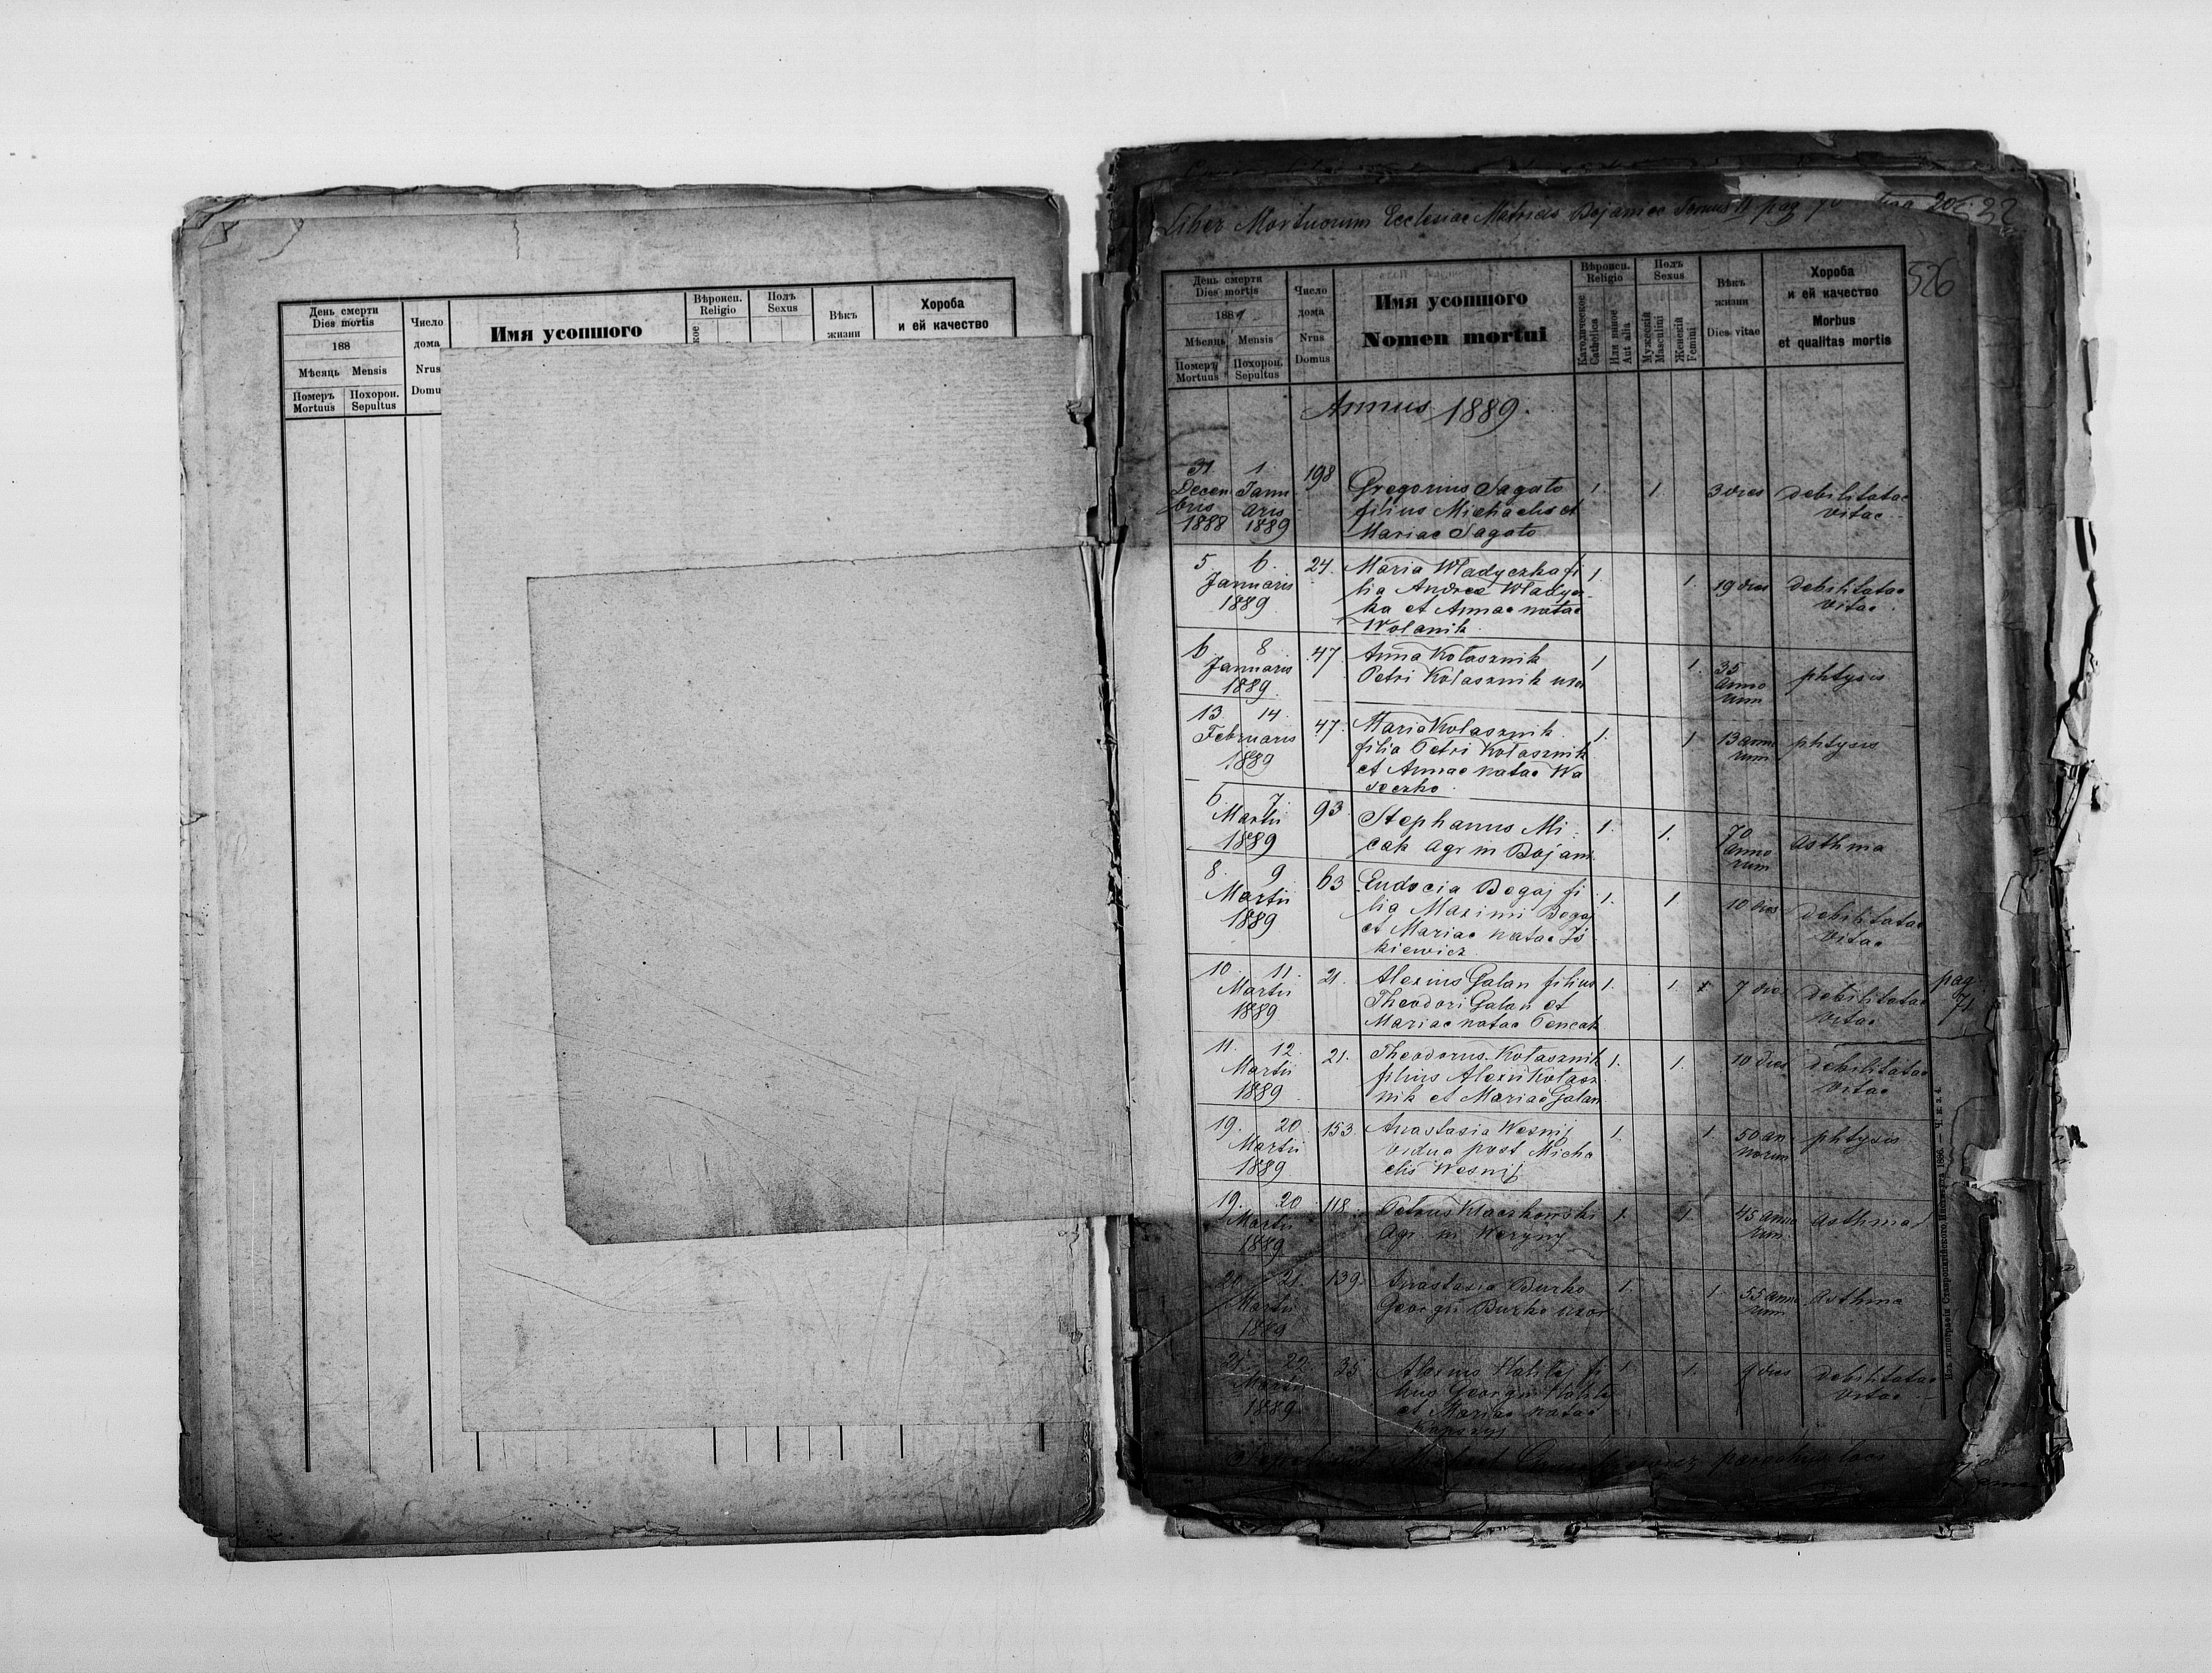 День смерти
Dies mortis
188
Мѣсяць Mensis
Померъ Похорон.
Mortuus Sepultus
Число
дома
Nrus
Domu
Имя усопшого
Вѣроисп.
Religio
Полъ
Sexus
Вѣкъ
жизни
Хороба
и ей качество
Liber Mortuorum Ecclesiae Matricis Bojaniec Tomus II pag
526
День смерти
Dies mortis
1889
Мѣсяць Mensis
Померъ Похорон.
Mortuus Sepultus
Число
дома
Nrus
Domus
Имя усопшого
Nomen mortui
Вѣроисп.
Religio
Католическое
Catholica
Или иное
Aut alia
Полъ
Sexus
Мужескій
Masculini
Женскій
Femini
Вѣкъ
жизни
Dies vitae
Хороба
и ей качество
Morbus
et qualitas mortis
Annus 1889.
31 1. 198 Gregorius Sagato 1. 1. 3 dies debilitatae
Decem Janu filius Michaelis et vitae
bris aris Mariae Sagato
1888 1889
5. 6. 24. Maria Władyczka fi 1. 1. 19 dies debilitatae
Januaris lia Andreae Władycz vitae
1889 ka et Annae natae
Wolanik
6. 8 47. Anna Kołasznik 1 1. 35 phtysis
Januaris Petri Kołasznik uxor anno
1889. rum
13. 14. 47. Maria Kołasznik 1. 1 13 anno phtysis
Februaris filia Petri Kołasznik rum
1889 et Annae natae Wa
seczko
6 7. 93. Stephanus Mi 1. 1. 70 asthma
Martii cak agr in Bojani anno
1889 rum
8. 9. 63 Eudocia Bogaj fi 1. 1 10 dies debilitatae
Martii lia Maximi Bogaj vitae
1889 et Mariae natae Jó
kiewicz
10. 11. 21. Alexius Galan filius 1. 1. x 7 dies debilitatae pag.
Martii Theodori Galan et vitae 71
1889 Mariae natae Pencak
11. 12. 21. Theodorus Kołasznik 1. 1. 10 dies debilitatae
Martii filius Alexii Kołasz vitae
1889 nik et Mariae Galan
19. 20. 153. Anastasia Wesnij 1. 1 50 an phtysis
Martii vidua post Micha norum
1889 elis Wesnij
19. 20. 118. Petrus Kłaczkowski 1. 1. 45 anno asthma
Martii agr in rum
1889
20. 21. 139. Anastasia Burko 1. 1. 55 anno asthma
Martii Georgii Burko uxor rum
1889
21. 22. 35 Alexius fi 1. 1. 9 dies debilitatae
Martii lius Georgii vitae
1889 et Mariae natae
Michael parochus loci
Изъ типографіи Ставропигійского Института 1886. — Ч. к. а. 4.